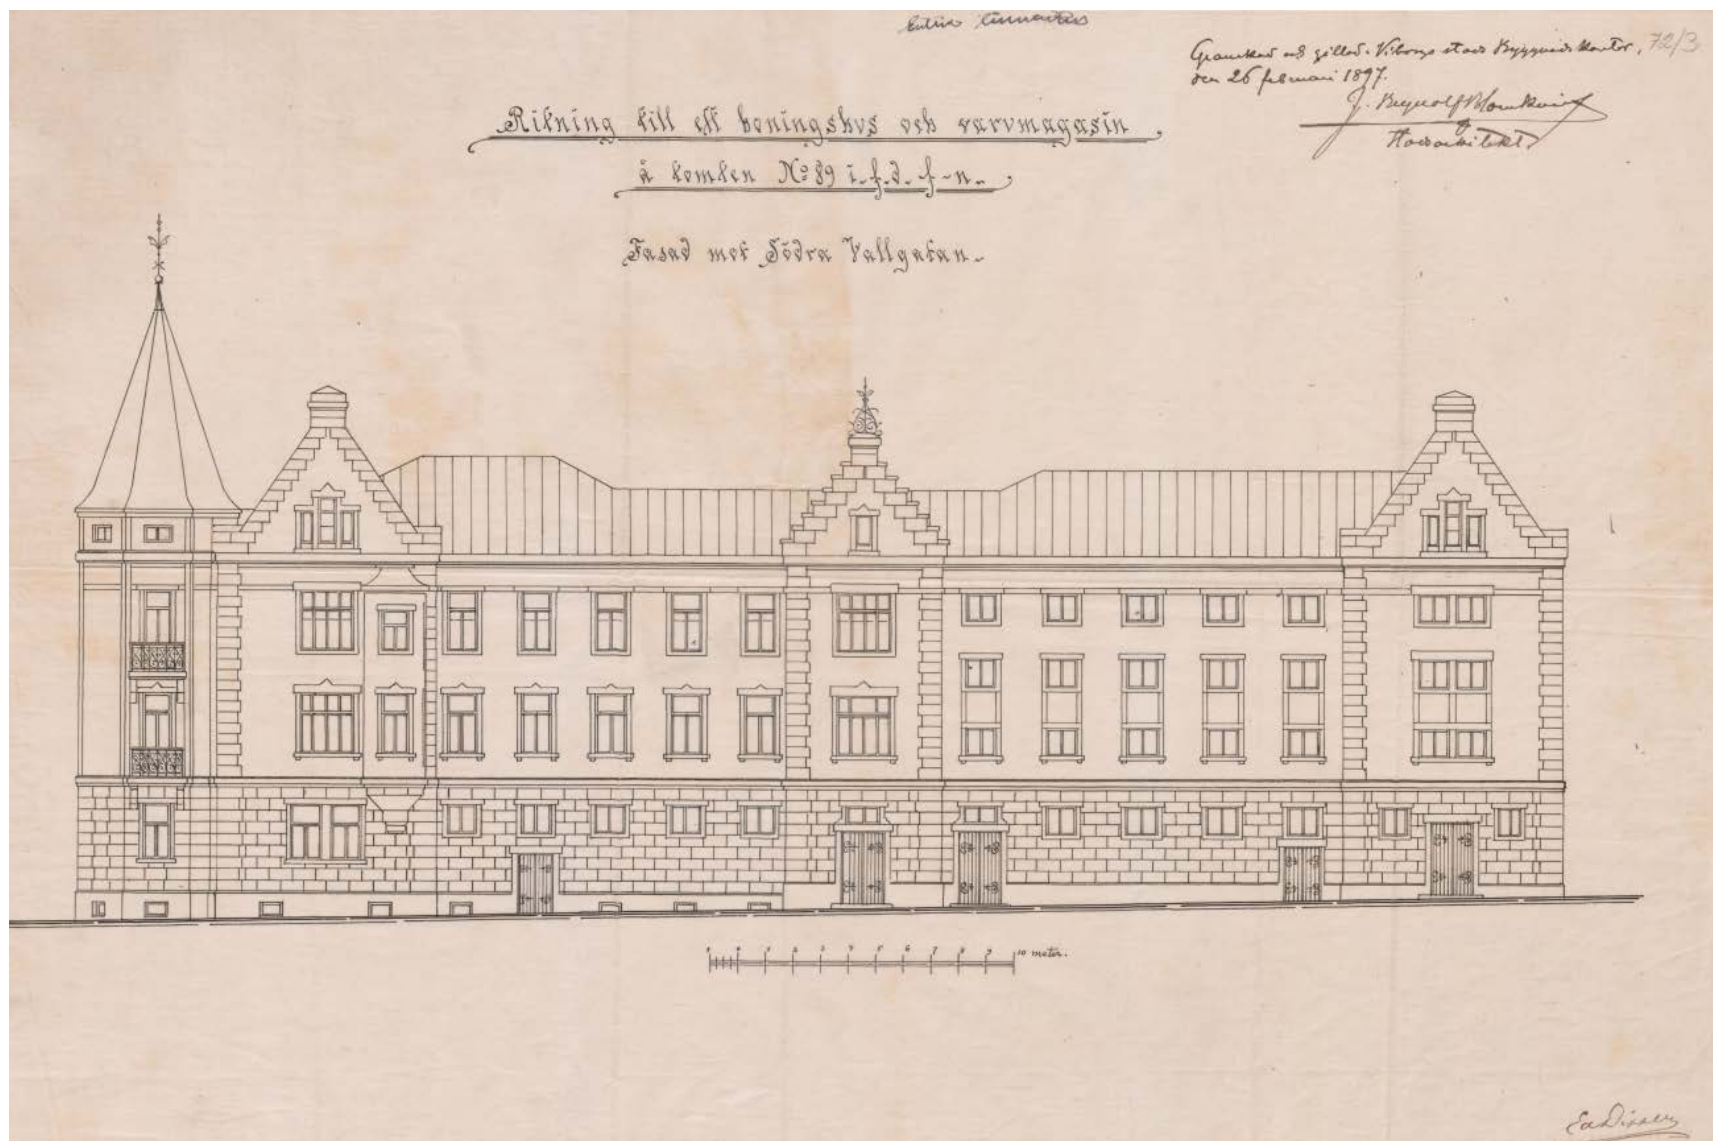 72/3
Granskad och gillad. Viborgs stads Byggnads kontor,
den 26 februari 1897.
J. Brynolf Blomkvist
Stadsarkitekt
Ritning till ett boningshus och varumagasin
å tomten No 89 i. f. d. f-n.
Fasad mot Södra Vallgatan.
1 0 1 2 3 4 5 6 7 8 9 10 meter.
Ed. Dippell